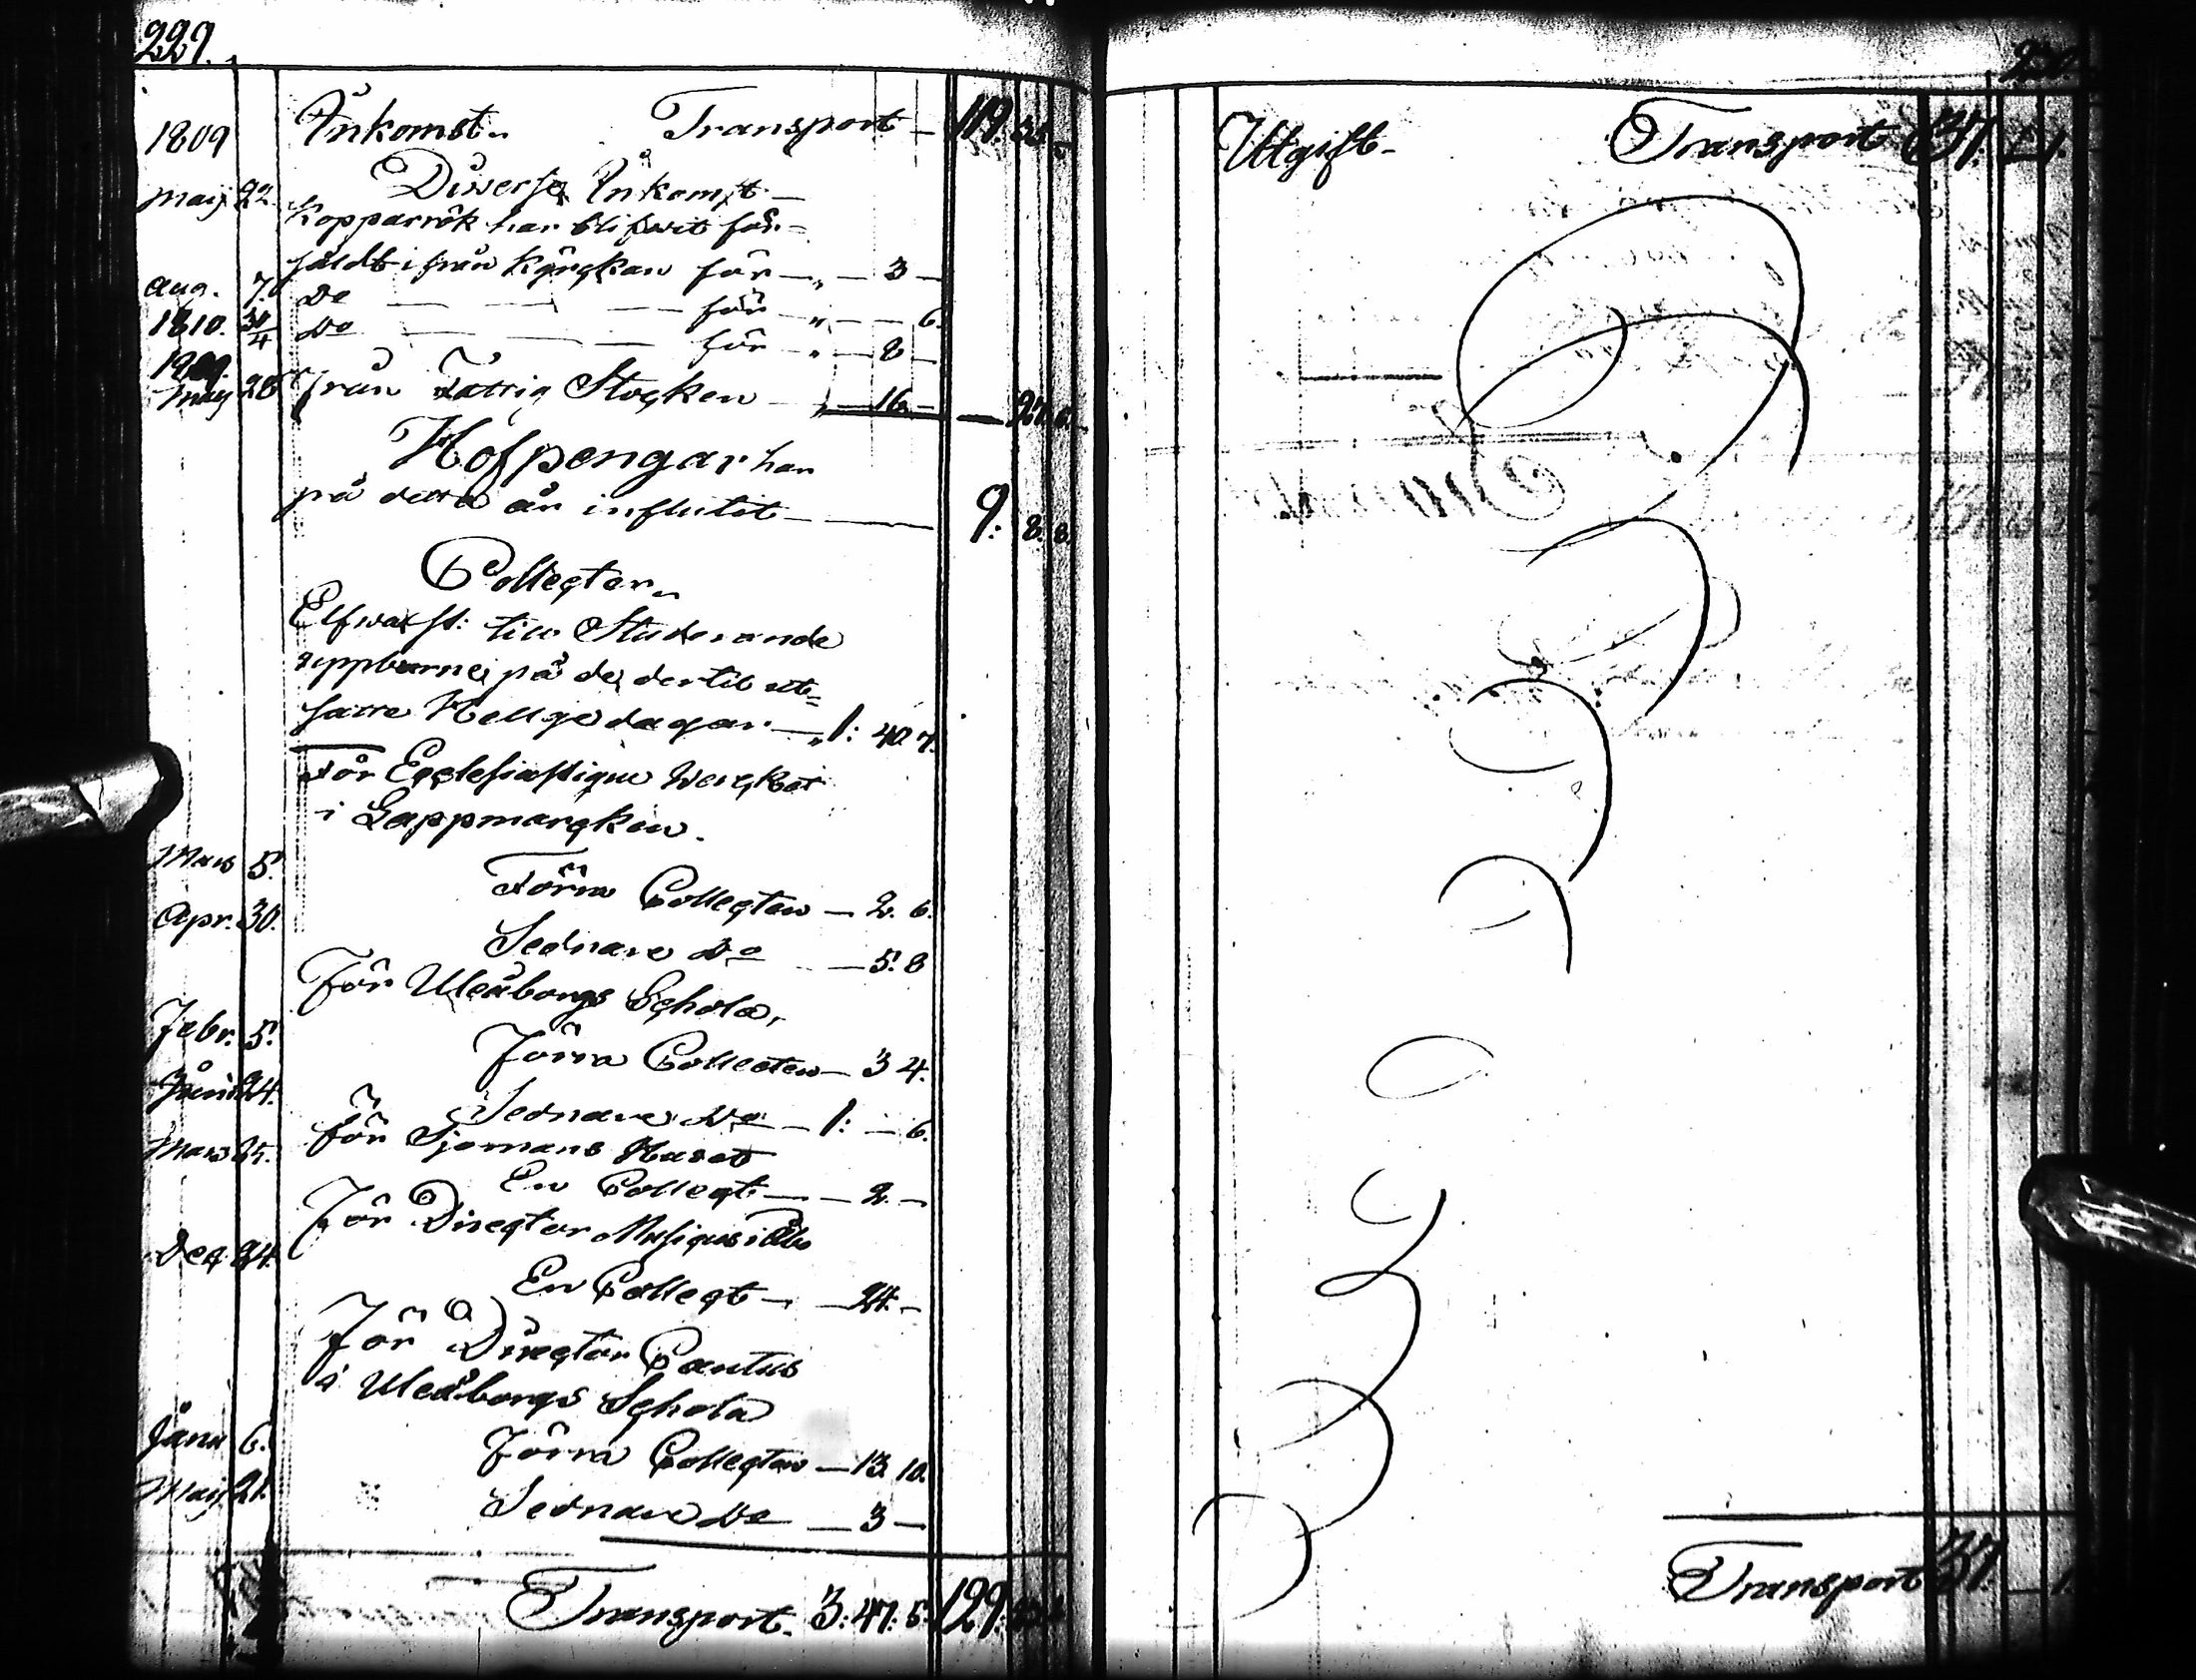 227.
1809 Inkomst. Transport — 119.
Diverse Inkomst —
maij 22. Kopparrök har blifwit för=
såldt ifrån Kyrckan för — „ — 3 —
aug. 7. Do — — — för — „ — — 6.
1810. 30/4 Do — — — för — „ — 8 —
1809.
maij 28 Från Fattig Stocken — „ — 16 — — 27. 6.
Håfpengar har
på detta år influtit — — 9: 8. 8.
Collecter.
Elfwa st: till Studerande
på de dertil ut=
satte Hellgedagar — „ 1: 40. 7.
För Ecclesiastique Wercket
i Lappmarcken.
Mars 5. Förra Collecten — 2. 6.
Apr. 30. Sednare Do — 5. 8
För Uleåborgs Schola,
Febr. 5. Förra Collecten — 3 4.
Juni 24. Sednare Do — 1: — 6.
Mars 25. för Sjömans Huset
En Collect — — 2. —
För Director Musices i Åbo
Dec 24. En Collect — — 24. —
För Director Cantus
i Uleåborgs Schola
Janu 6. Förra Collecten — 13. 10.
Maij 21. Sednare Do — 3 —
Transport. 3: 47. 5. 129:
Utgift. Transport 37. — 1.
Transport 37. — 1.